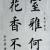 室雅何
花香不